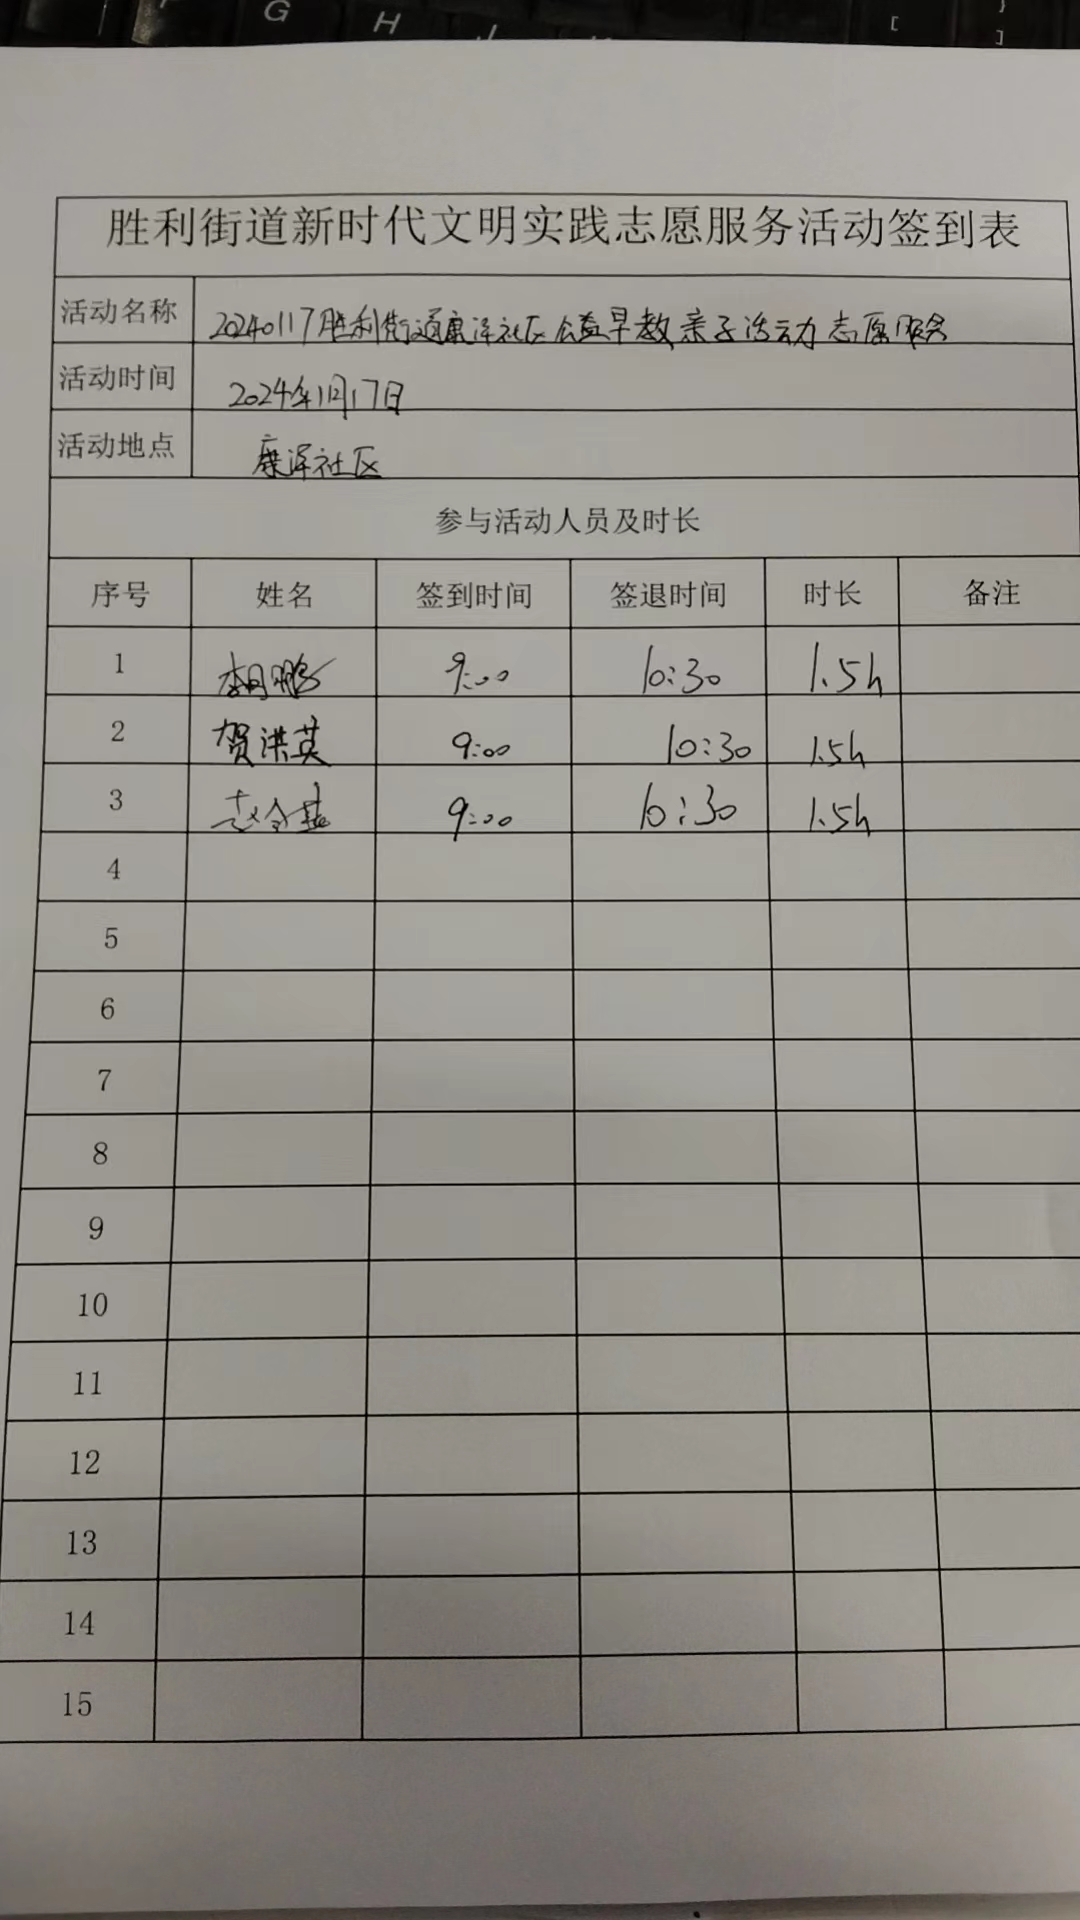 G H J [ } ]
胜利街道新时代文明实践志愿服务活动签到表
活动名称 20240117胜利街道康泽社区公益早教亲子活动志愿服务
活动时间 2024年1月17日
活动地点 康泽社区
参与活动人员及时长
序号 姓名 签到时间 签退时间 时长 备注
1 9:00 10:30 1.5h
2 贺洪英 9:00 10:30 1.5h
3 9:00 10:30 1.5h
4
5
6
7
8
9
10
11
12
13
14
15